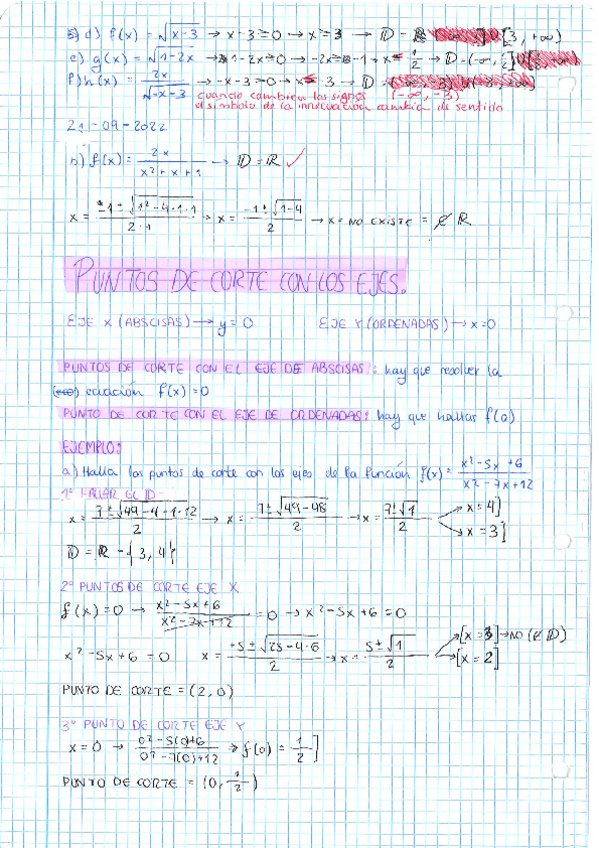 5) d) f(x) = √(x-3) → x-3 ≥ 0 → x ≥ 3 → D = [3, +∞)
e) g(x) = √(1-2x) → 1-2x ≥ 0 → -2x ≥ -1 → x ≤ 1/2 → D = (-∞, 1/2]
f) h(x) = 2x/√(-x-3) → -x-3 > 0 → x < -3 → D = (-∞, -3)
cuando cambien los signos
el símbolo de la inecuación cambia de sentido
21-09-2022
h) f(x) = 2x/(x²+x+1) → D = R ✓
x = (-1 ± √(1²-4·1·1))/(2·1) → x = (-1 ± √(1-4))/2 → x = NO EXISTE = ∉ R
PUNTOS DE CORTE CON LOS EJES.
EJE X (ABSCISAS) → y = 0 EJE Y (ORDENADAS) → x = 0
PUNTOS DE CORTE CON EL EJE DE ABSCISAS: hay que resolver la
ecuación f(x) = 0
PUNTO DE CORTE CON EL EJE DE ORDENADAS: hay que hallar f(0)
EJEMPLO:
a) Halla los puntos de corte con los ejes de la función f(x) = (x²-5x+6)/(x²-7x+12)
1º HALLAR EL D
x = (7 ± √(49-4·1·12))/2 → x = (7 ± √(49-48))/2 → x = (7 ± √1)/2 → x = 4] → x = 3]
D = R - {3, 4}
2º PUNTOS DE CORTE EJE X
f(x) = 0 → (x²-5x+6)/(x²-7x+12) = 0 → x²-5x+6 = 0
x²-5x+6 = 0 x = (+5 ± √(25-4·6))/2 → x = (5 ± √1)/2 → [x = 3] → NO (∉ D) → [x = 2]
PUNTO DE CORTE = (2, 0)
3º PUNTO DE CORTE EJE Y
x = 0 → (0²-5(0)+6)/(0²-7(0)+12) → f(0) = 1/2]
PUNTO DE CORTE = (0, 1/2)